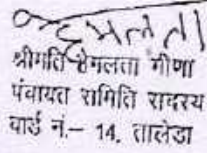 हेमलता
श्रीमति हेमलता मीणा
पंचायत समिति सदस्य
वार्ड नं.– 14, तालेडा